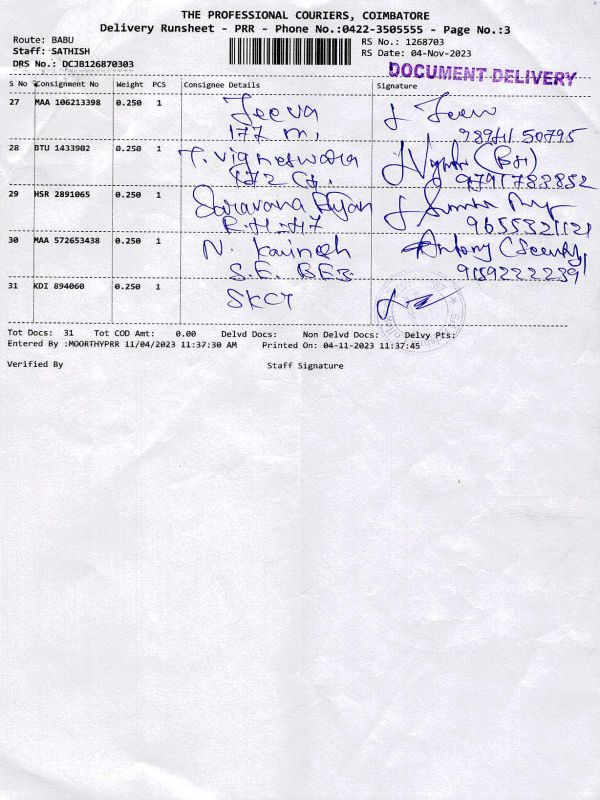 THE PROFESSIONAL COURIERS, COIMBATORE
Delivery Runsheet - PRR - Phone No.:0422-3505555 - Page No.:3
Route: BABU RS No.: 1268703
Staff: SATHISH RS Date: 04-Nov-2023
DRS No.: DCJB126870303 DOCUMENT DELIVERY
S No Consignment No Weight PCS Consignee Details Signature
27 MAA 106213398 0.250 1 Jeeva
177 m,
28 BTU 1433902 0.250 1 T. Vigneswara
9791783852
29 HSR 2891065 0.250 1 Saravana
R.H-47 9655321121
30 MAA 572653438 0.250 1 N. Kavinesh Antony (Security)
S.E. BE3. 9159222239
31 KDI 894060 0.250 1 SKCT
Tot Docs: 31 Tot COD Amt: 0.00 Delvd Docs: Non Delvd Docs: Delvy Pts:
Entered By :MOORTHYPRR 11/04/2023 11:37:30 AM Printed On: 04-11-2023 11:37:45
Verified By Staff Signature